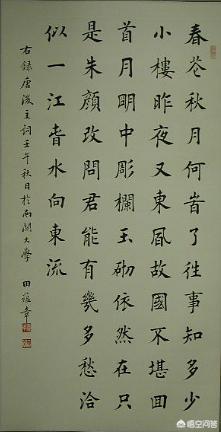 春花秋月何旹了往事知多少
小樓昨夜又東風故國不堪回
首月明中彫欄玉砌依然在只
是朱顏改問君能有幾多愁恰
似一江春水向東流
右錄唐後主詞壬午秋日於南開大學 田蘊章
悟空问答